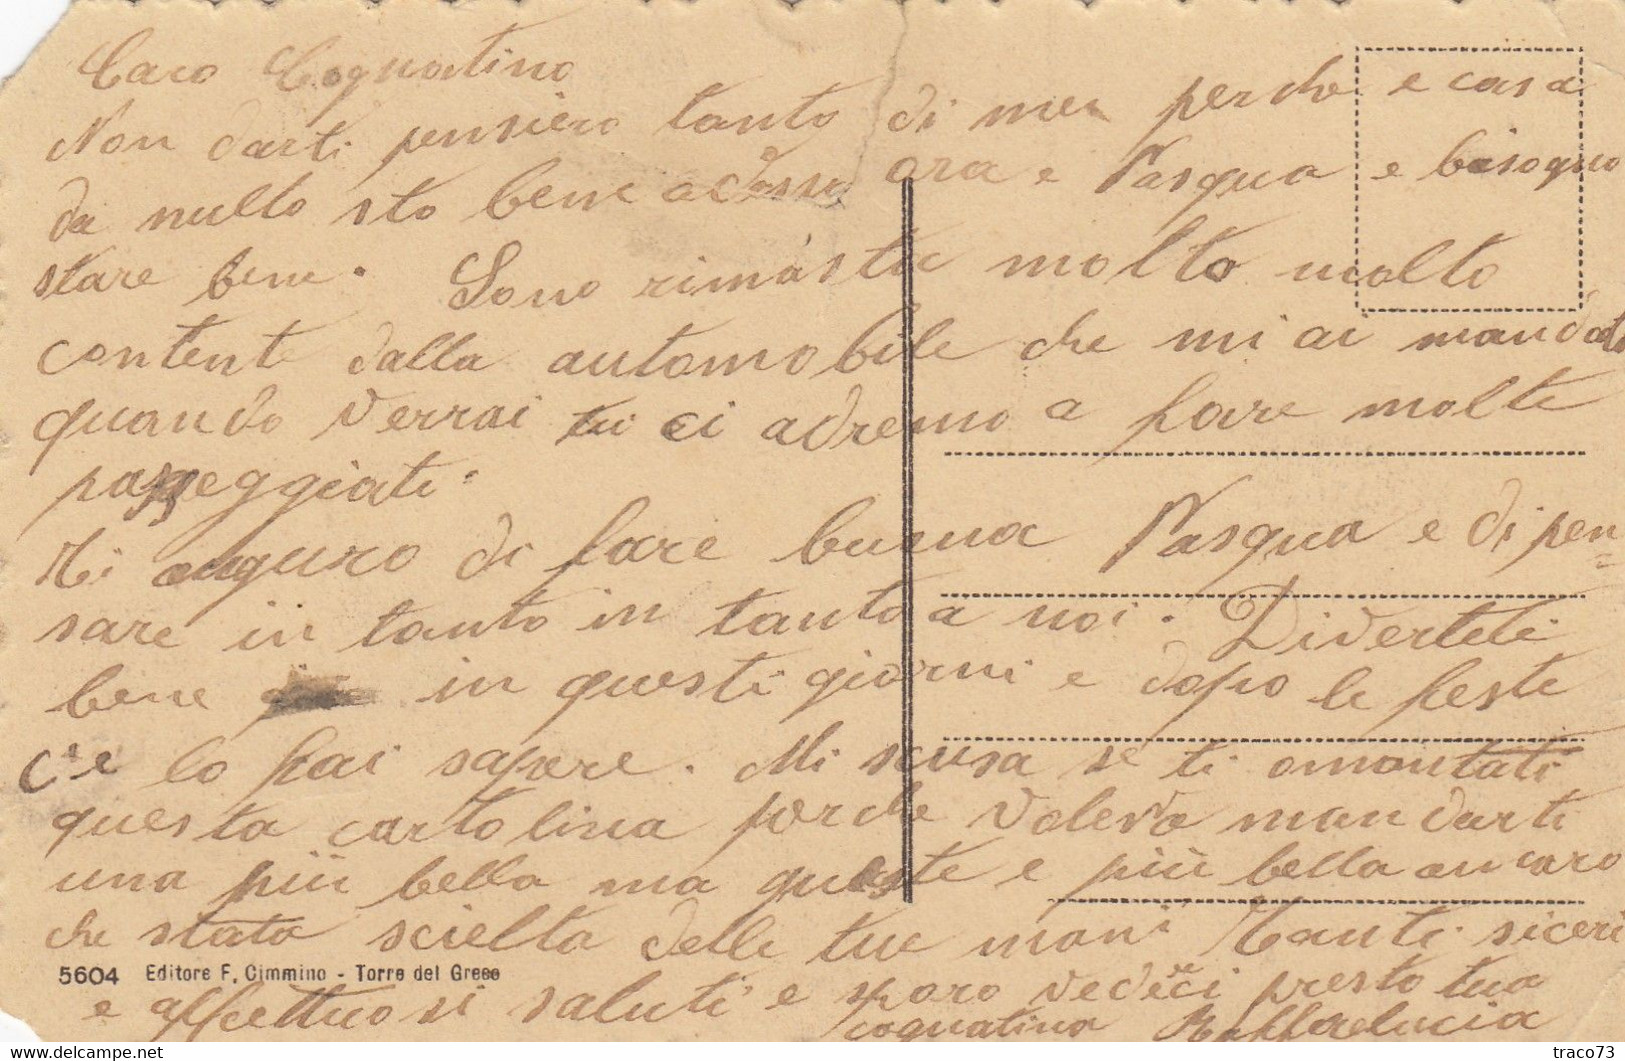 Caro Cognatino
Non darti pensiero tanto di me perche e casa
da nullo sto bene adesso ora e Pasqua e bisogno
stare bene. Sono rimasta molto molto
contente dalla automobile che mi ai mandato
quando verrai ci adremo a fare molte
passeggiati.
Ti auguro di fare buona Pasqua e di pen=
sare in tanto in tanto a noi. Divertiti
bene in questi giorni e dopo le feste
c'e lo fai sapere. Mi scusa se ti
questa cartolina perche voleva mandarti
una più bella ma queste e più bella ancaro
che stata scielta delle tue mani Tanti siceri
5604 Editore F. Cimmino - Torre del Greco
e affettuosi saluti e spero vederci presto tua
cognatina Raffaelucia
traco73